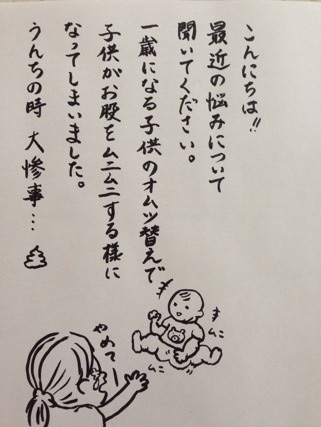 こんにちは!!
最近の悩みについて
聞いてください。
一歳になる子供のオムツ替えで
子供がお股をムニムニする様に
なってしまいました。
うんちの時 大惨事…
ムニ
ムニ
やめてー